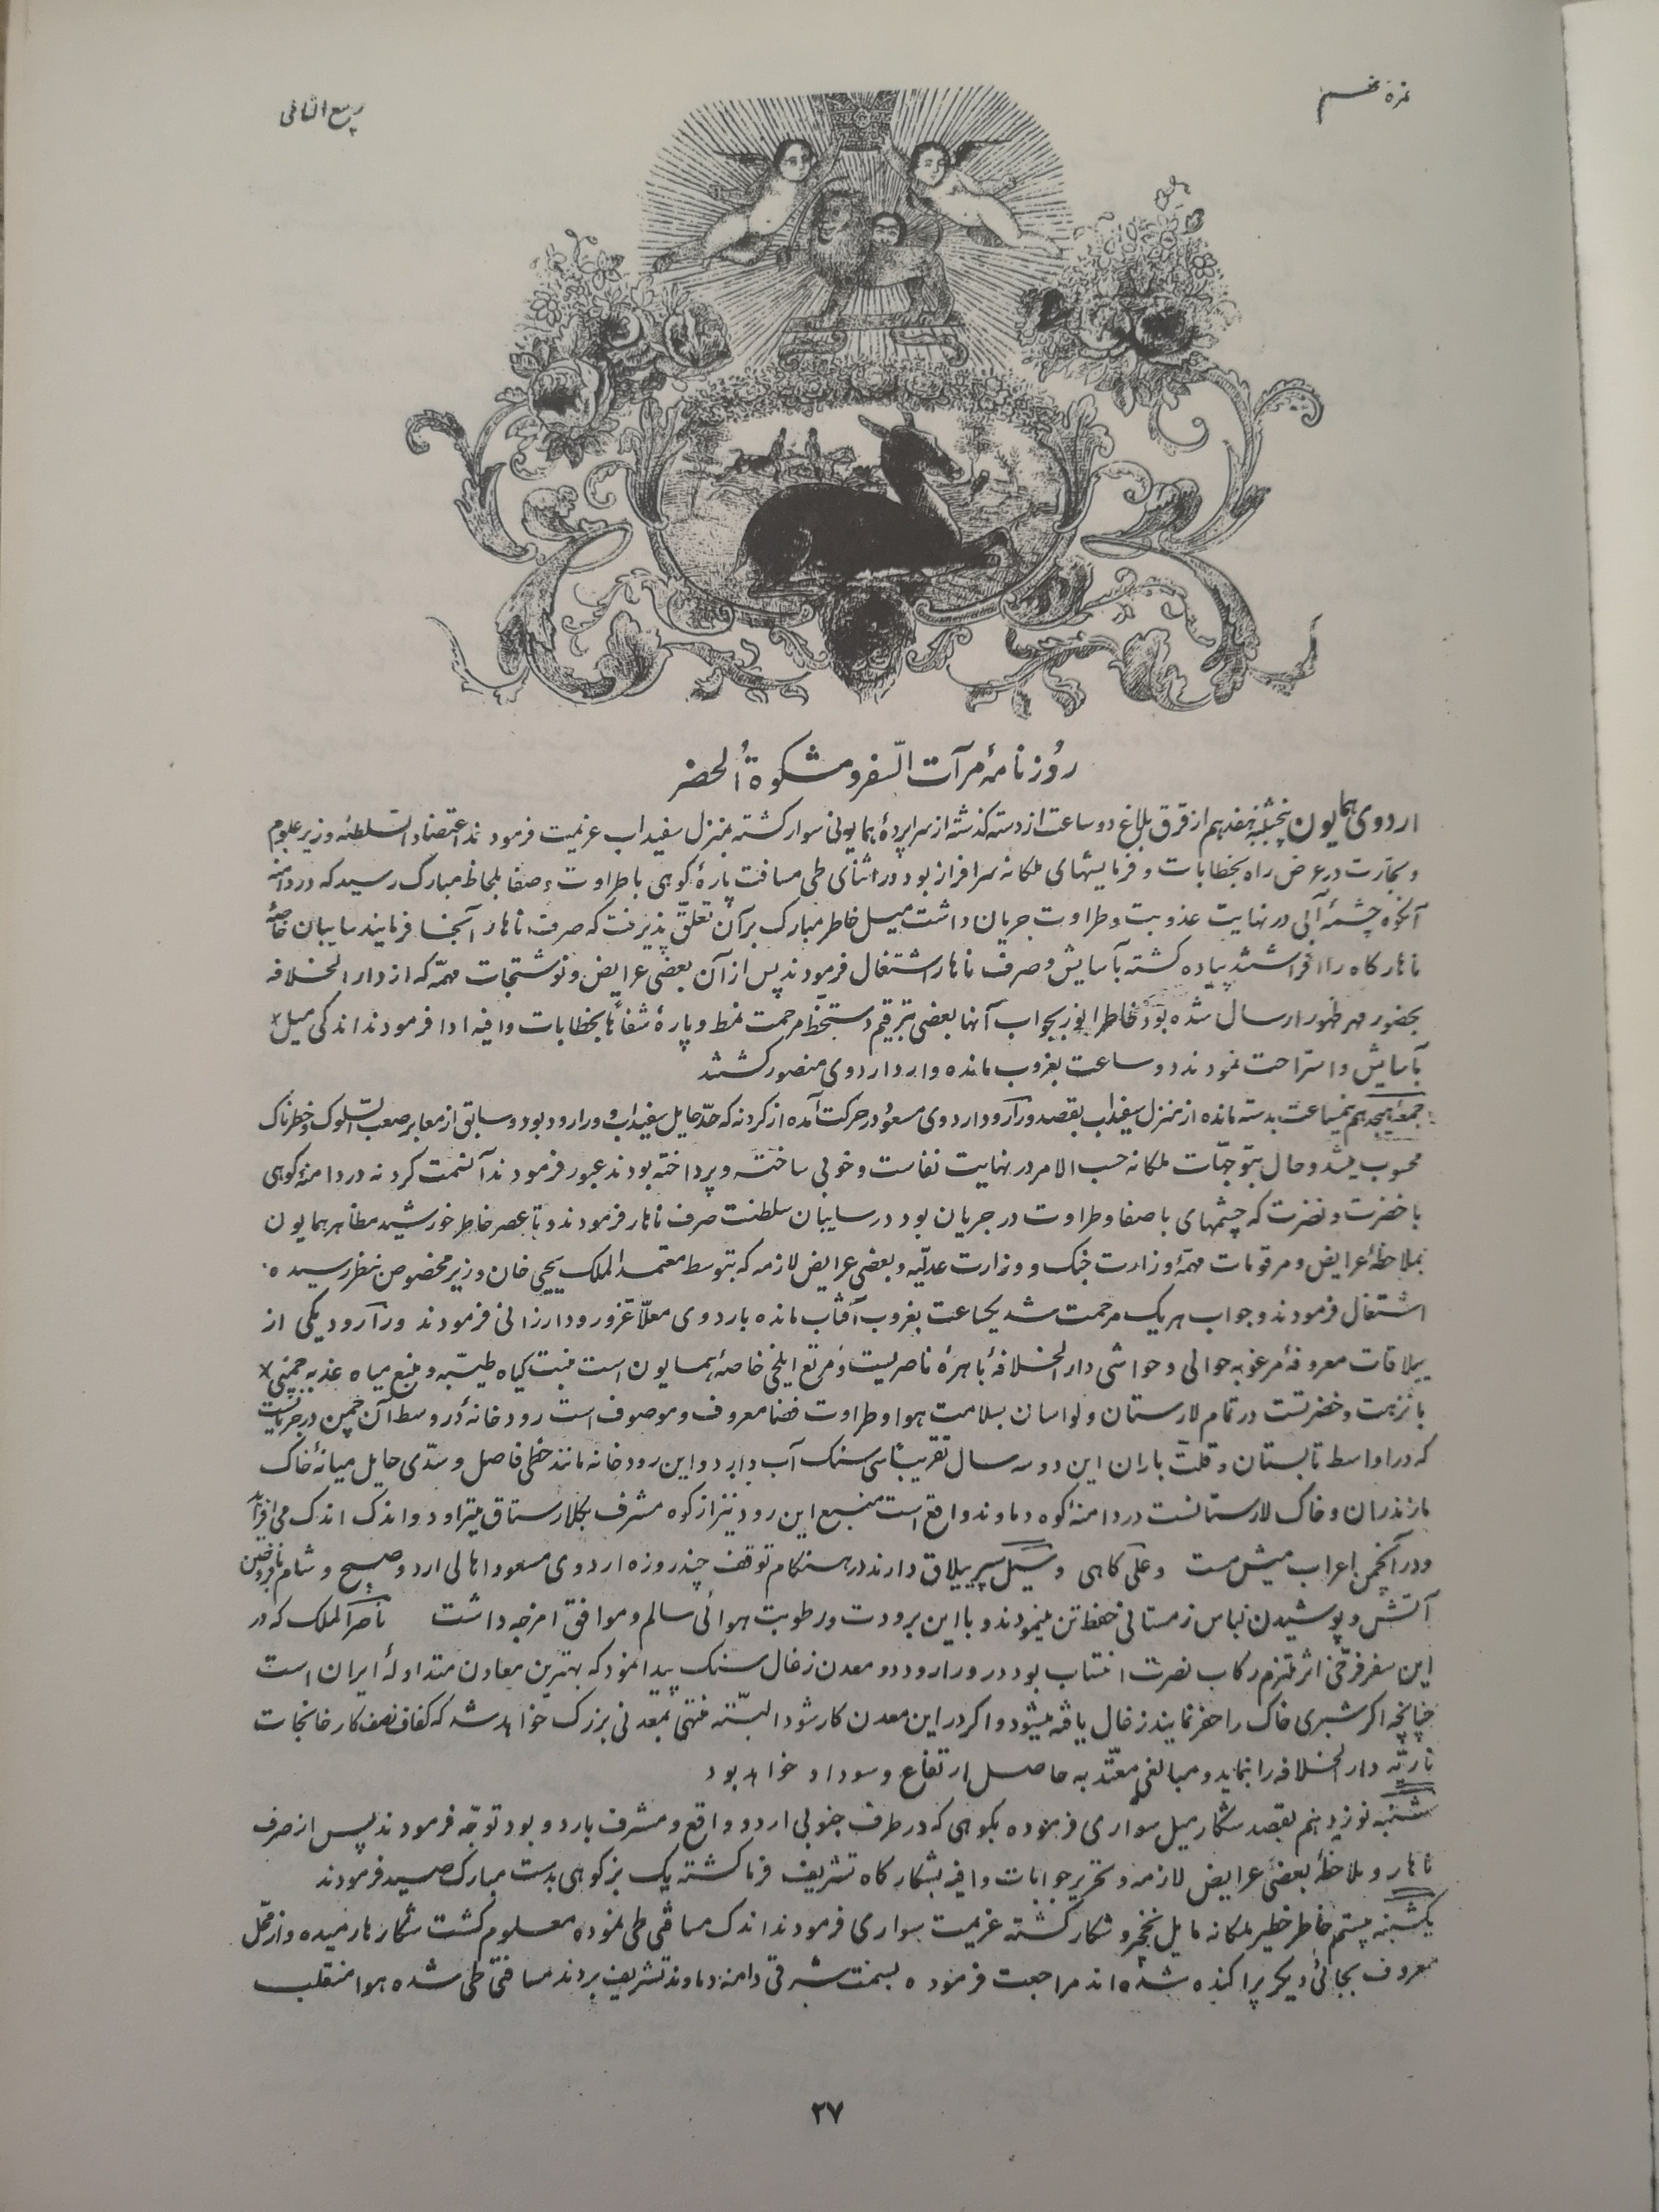 نمره نهم
ربیع الثانی
روزنامهٔ مرآت السفر و مشکوة الحضر
اردوی همایون پنجشنبه هفدهم از قرق بلاغ دو ساعت از دسته گذشته از سراپردهٔ همایونی سوار گشته بمنزل سفیداب عزیمت فرمودند اعتضاد السلطنه وزیر علوم
و تجارت در عرض راه بخطابات و فرمایشهای ملکانه سرافراز بود در اثنای طی مسافت پارهٔ کوهی با طراوت و صفا بلحاظ مبارک رسید که در دامنه
آنکوه چشمهٔ آبی در نهایت عذوبت و طراوت جریان داشت میل خاطر مبارک بر آن تعلّق پذیرفت که صرف ناهار آنجا فرمایند سایبان خاصّهٔ
ناهارگاه را افراشتند پیاده گشته بآسایش و صرف ناهار اشتغال فرمودند پس از آن بعضی عرایض و نوشتجات مهمّه که از دار الخلافه
بحضور مهر ظهور ارسال شده بود خاطر انور بجواب آنها بعضی بترقیم دستخط مرحمت نمط و پارهٔ شفاهاً بخطابات وافیه ادا فرمودند اندکی میل
بآسایش و استراحت نمودند دو ساعت بغروب مانده وارد اردوی منصور گشتند
جمعهٔ هیجدهم نیمساعت بدسته مانده از منزل سفیداب بقصد ورارود اردوی مسعود در حرکت آمده از گردنه که حدّ حایل سفیداب و ورارود بود و سابق از معابر صعب السلوک و خطرناک
محسوب میشد و حال بتوجهّات ملکانه حسب الامر در نهایت نفاست و خوبی ساخته و پرداخته بودند عبور فرمودند آنسمت گردنه در دامنهٔ کوهی
با خضرت و نضرت که چشمهای با صفا و طراوت در جریان بود در سایبان سلطنت صرف ناهار فرمودند و تا عصر خاطر خورشید مظاهر همایون
بملاحظهٔ عرایض و مرقومات مهمّهٔ وزارت جنک و وزارت عدلیّه و بعضی عرایض لازمه که بتوسط معتمد الملک یحیی خان وزیر مخصوص بنظر رسیده
اشتغال فرمودند و جواب هریک مرحمت شد یکساعت بغروب آفتاب مانده باردوی معلّا عزّ ورود ارزانی فرمودند ورارود یکی از
ییلاقات معروفهٔ مرغوبه حوالی و حواشی دار الخلافهٔ باهرهٔ ناصریست و مرتع ایلخی خاصهٔ همایون است منبت گیاه طیبّه و منبع میاه عذبه چمنی
با نزهت و خضرتست در تمام لارستان و لواسان بسلامت هوا و طراوت فضا معروف و موصوف است رودخانهٔ در وسط آن چمن در جریانست
که در اواسط تابستان و قلّت باران این دو سه سال تقریباً سی سنک آب دارد و این رودخانه مانند خطی فاصل و سدّی حایل میانهٔ خاک
مازندران و خاک لارستانست در دامنهٔ کوه دماوند واقع است منبع این رود نیز از کوه مشرف بکلارستاق میتراود و اندک اندک می‌افزاید
و در آنچمن اعراب میش مست و علی گاهی و سیل سپر ییلاق دارند در هنگام توقف چند روزه اردوی مسعود اهالی اردو صبح و شام بافروختن
آتش و پوشیدن لباس زمستانی حفظ تن مینمودند و با این برودت و رطوبت هوائی سالم و موافق امزجه داشت ناصر الملک که در
این سفر فرخّی اثر ملتزم رکاب نصرت انتساب بود در ورارود دو معدن زغال سنک پیدا نمود که بهترین معادن متداولهٔ ایران است
چنانچه اگر شبری خاک را حفر نمایند زغال یافته میشود و اگر در این معدن کار شود البتّه منتهی بمعدنی بزرک خواهد شد که کفاف نصف کارخانجات
ناریّه دار الخلافه را بنماید و مبالغی معتدّ به حاصل ارتفاع و سود او خواهد بود
شنبه نوزدهم بقصد شکار میل سواری فرموده بکوهی که در طرف جنوبی اردو واقع و مشرف باردو بود توجّه فرمودند پس از صرف
ناهار و ملاحظهٔ بعضی عرایض لازمه و تحریر جوابات وافیه بشکارگاه تشریف فرما گشته یک بز کوهی بدست مبارک صید فرمودند
یکشنبه بیستم خاطر خطیر ملکانه مایل نخجیر و شکار گشته عزیمت سواری فرمودند اندک مسافتی طی نموده معلوم گشت شکارها رمیده و از محّل
معروف بجائی دیگر پراکنده شده‌اند مراجعت فرموده بسمت شرقی دامنه دماوند تشریف بردند مسافتی طی شده هوا منقلب
۲۷